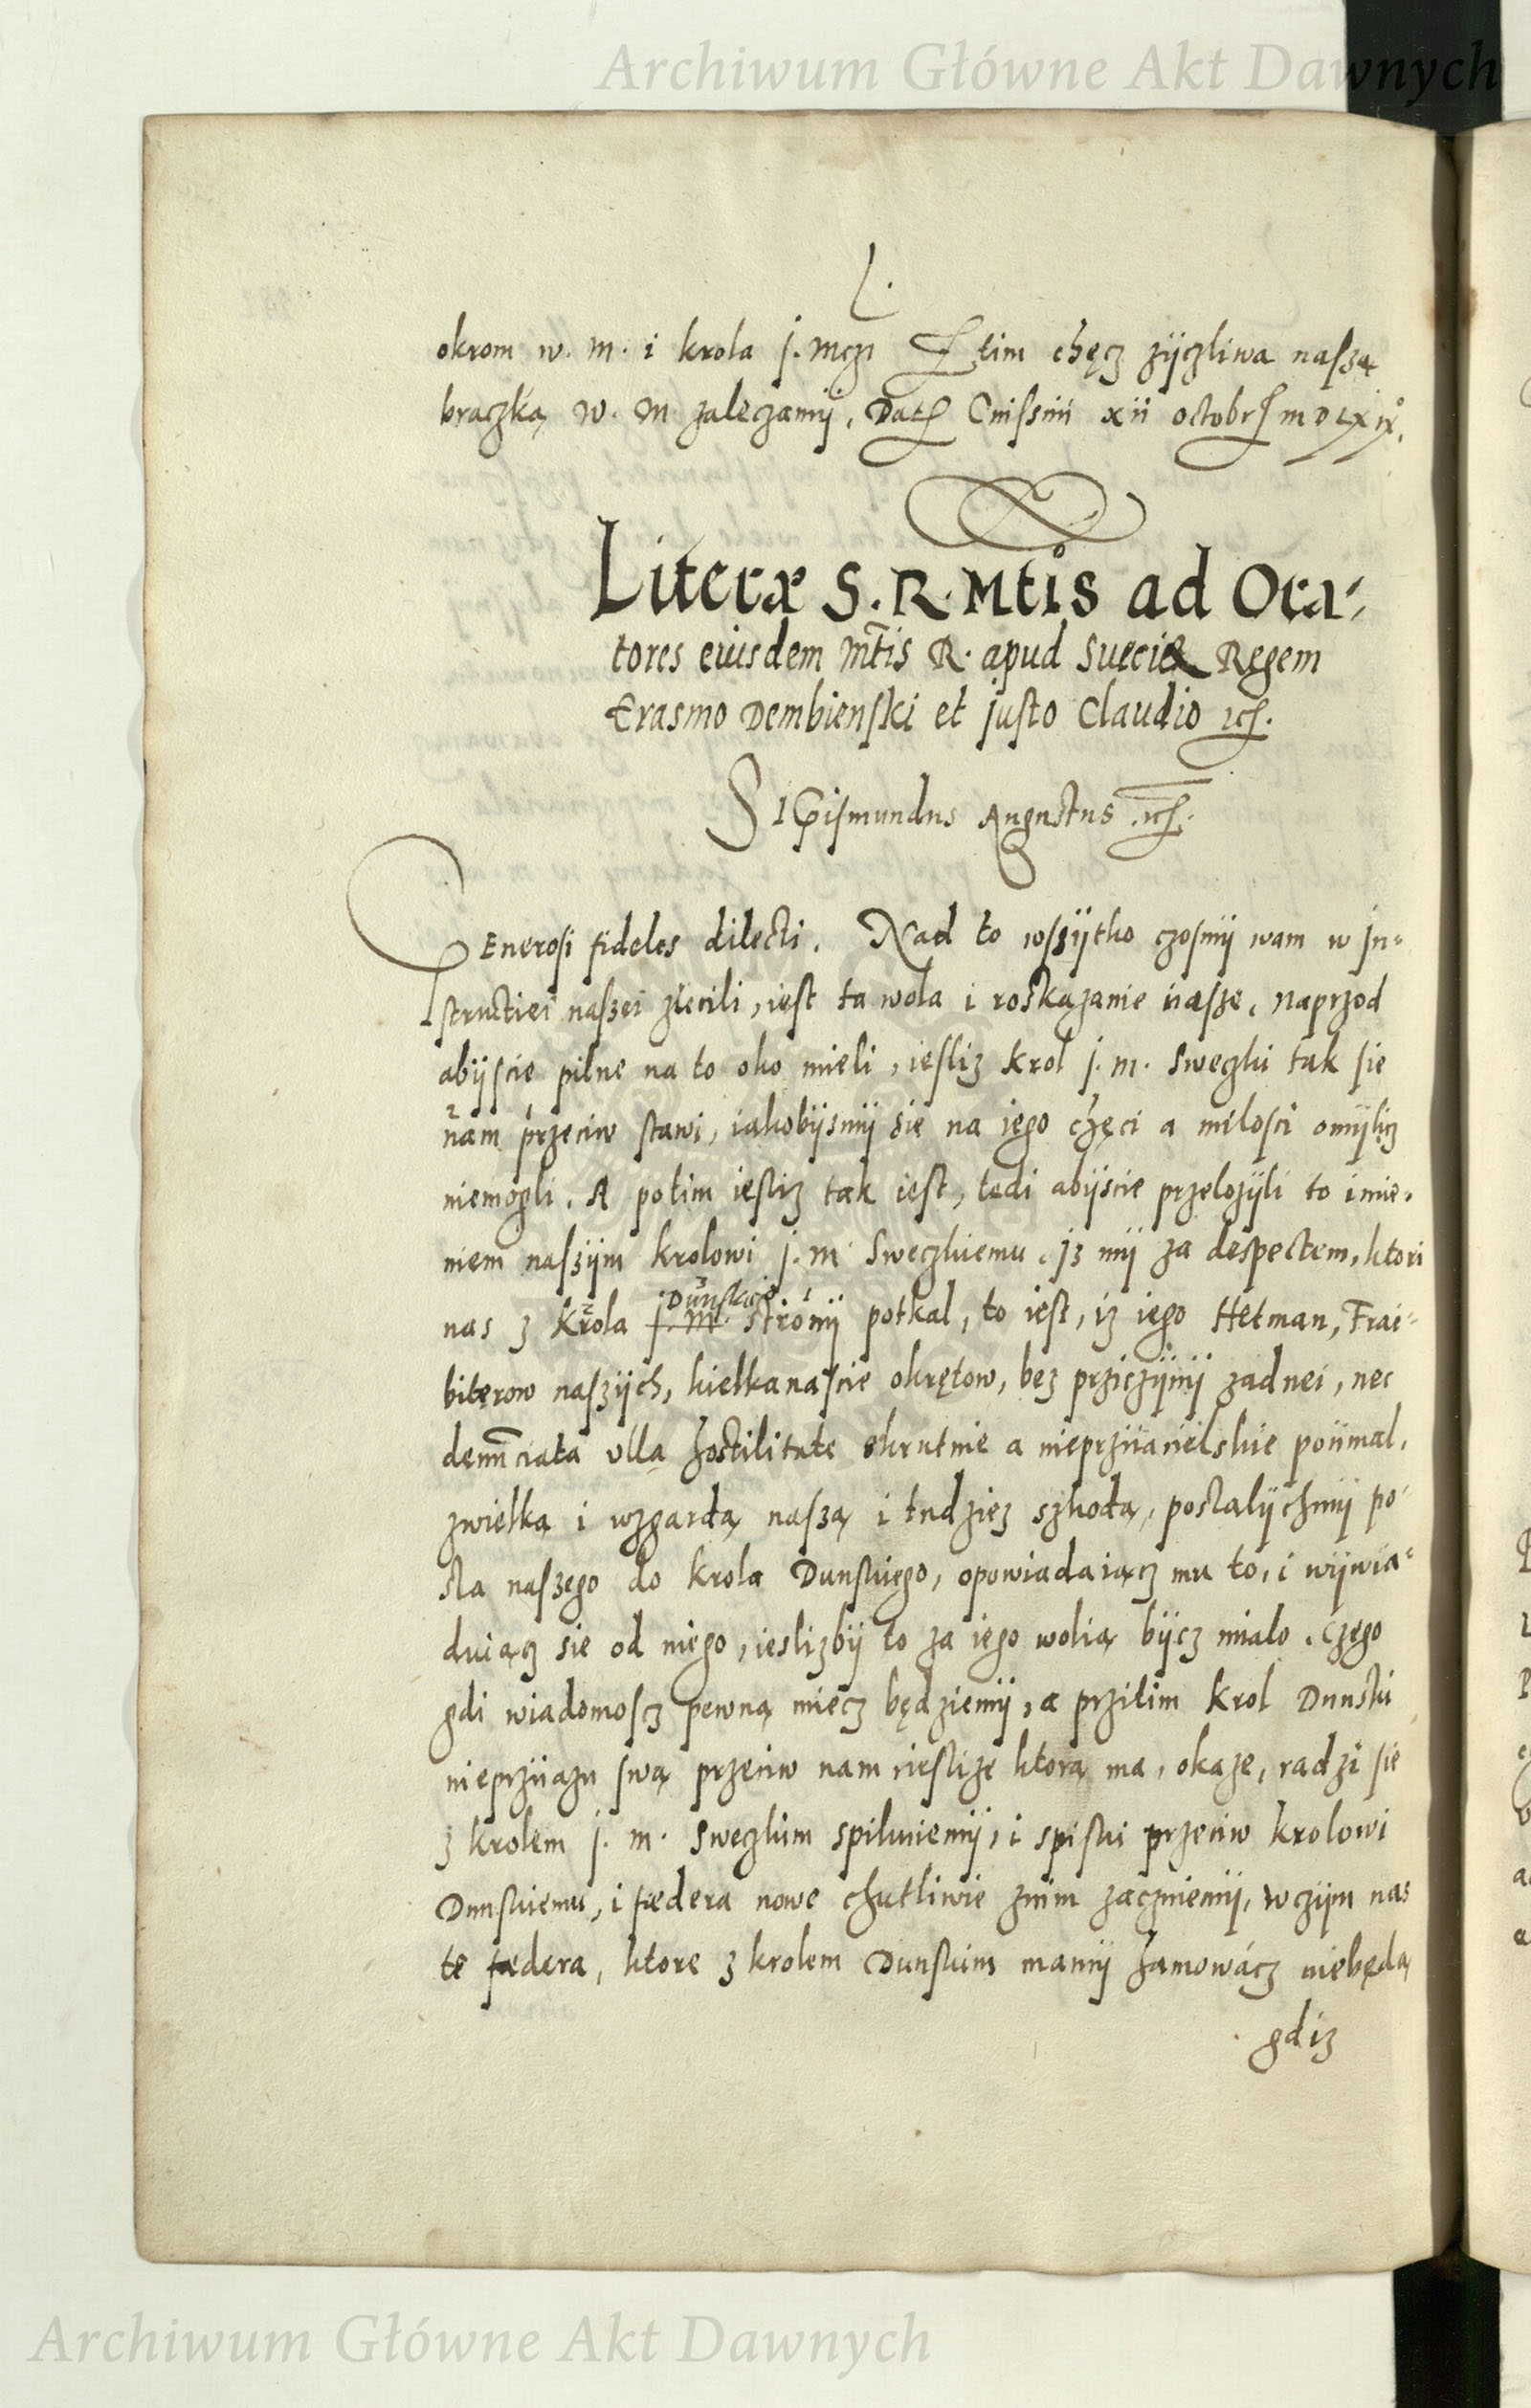 Archiwum Główne Akt Dawnych
L.
okrom w. m. i krola j. mczi Z tim chęcz zyczliwa naszą
braczką w. m. zaleczamÿ. Datꝭ Cnissiń xii octobrꝭ m d lx ix°.
Literæ S. R. Mtis ad Ora-
tores eiusdem Mt̃is R. apud Sueciæ Regem
Erasmo Dembienski et justo Claudio ꝛcꝭ.
SIGismundus Augustus .ꝛcꝭ.
GEnerosi fideles dilecti. Nad to wszÿtko czosmÿ wam w jn-
structiei naszei zlecili, iest ta wola i roskazanie nasze, naprzod
abÿscie pilne na to oko mieli, iesliz krol j. m. Sweczki tak sie
2 1
nam przeciw stawi, iakobÿsmÿ się na iego chęci a milosci omÿlicz
niemogli. A potim iesliz tak iest, tedi abÿscie przelozÿli to imie-
niem naszÿm krolowi j. m. Sweczkiemu, jz mÿ za despectem, ktori
3 Dunskiei
nas z krola j. m. stronÿ potkal, to iest, iz iego Hetman, Frai-
biterow naszÿch, kielkanascie okrętow, bez prziczÿnÿ zadnei, nec
denũciata vlla hostilitate okrutnie a nieprziiacielskie poiimal,
zwielką i wzgardą naszą i tudziez szkodą, poslalÿchmÿ po-
sla naszego do krola Dunskiego, opowiadaiącz mu to, i wÿwia-
duiącz sie od niego, ieslizbÿ to za iego wolią bÿcz mialo. Czego
gdi wiadomoscz pewną miecz będziemÿ, a przitim krol Dunski
nieprziiazn swą przeciw nam iesliże ktorą ma, okaze, radzi sie
z krolem j. m. Sweczkim spikniemÿ, i spiski przeciw krolowi
Dunskiemu, i fædera nowe chutliwie znim zaczniemÿ, w czÿm nas
te fædera, ktore z krolem Dunskim mamÿ hamowácz niebędą
gdiz
Archiwum Główne Akt Dawnych